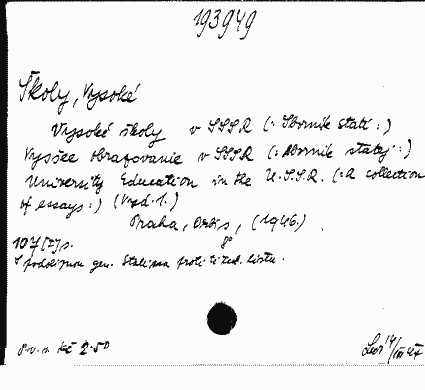 193949
Školy, Vysoké
Vysoké školy v SSSR (: Sborník statí :)
Vysšee obrazovanie v SSSR (: Sbornik statej :)
University Education in the U.S.S.R. (: A collection
of essays :) (Vyd. 1.)
Praha, Orbis, (1946.)
107 [2] s. 8°
S podobiznou gen. Stalina proti tit. listu.
Kč 2.50